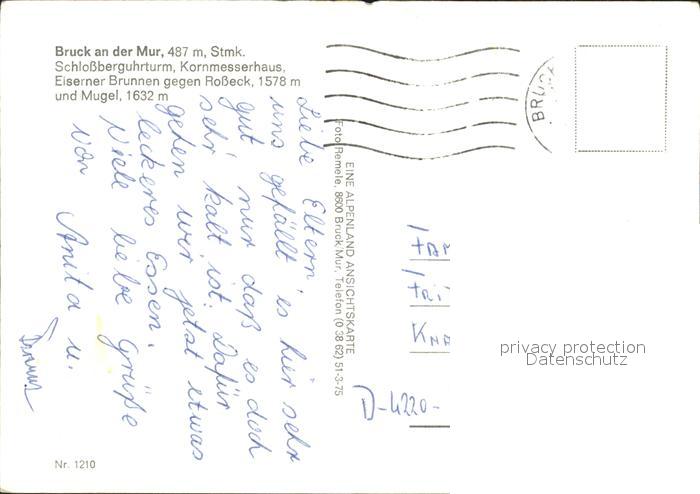 Bruck an der Mur, 487 m, Stmk.
Schloßberguhrturm, Kornmesserhaus,
Eiserner Brunnen gegen Roßeck, 1578 m
und Mugel, 1632 m
Liebe Eltern
uns gefällt es hier sehr
gut nur daß es doch
sehr kalt ist. Dafür
gehen wir jetzt etwas
leckeres Essen.
Viele liebe Grüße
von Anita u.
EINE ALPENLAND ANSICHTSKARTE
Foto Remele, 8600 Bruck Mur, Telefon (0 38 62) 51-3-75
BRUC
D-4220-
privacy protection
Datenschutz
Nr. 1210